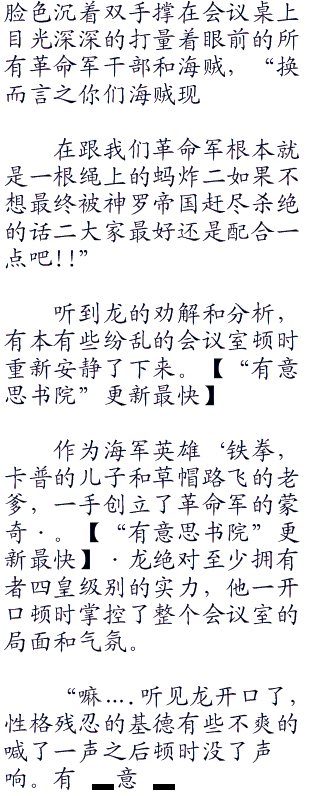 脸色沉着双手撑在会议桌上
目光深深的打量着眼前的所
有革命军干部和海贼，“换
而言之你们海贼现
在跟我们革命军根本就
是一根绳上的蚂炸二如果不
想最终被神罗帝国赶尽杀绝
的话二大家最好还是配合一
点吧!!”
听到龙的劝解和分析，
有本有些纷乱的会议室顿时
重新安静了下来。【“有意
思书院”更新最快】
作为海军英雄‘铁拳，
卡普的儿子和草帽路飞的老
爹，一手创立了革命军的蒙
奇·。【“有意思书院”更
新最快】·龙绝对至少拥有
者四皇级别的实力，他一开
口顿时掌控了整个会议室的
局面和气氛。
“嘛….听见龙开口了，
性格残忍的基德有些不爽的
喊了一声之后顿时没了声
响。有▂意▂